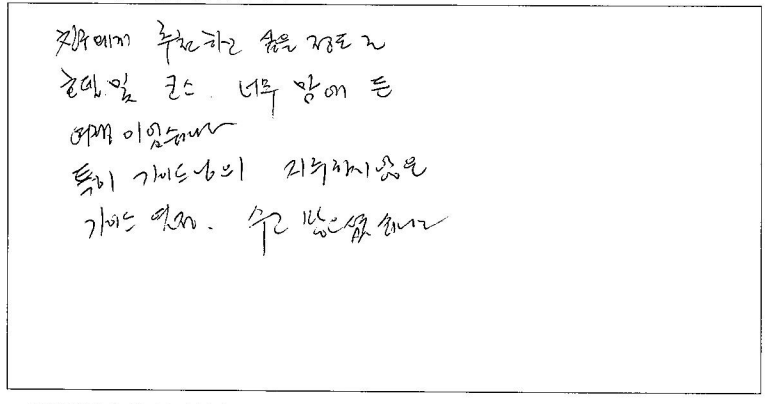 친구에게 추천하고 싶을 정도로
호텔 및 코스. 너무 맘에 든
여행이었습니다
특히 가이드님의 지루하지 않은
가이드 열정. 수고 많으셨습니다